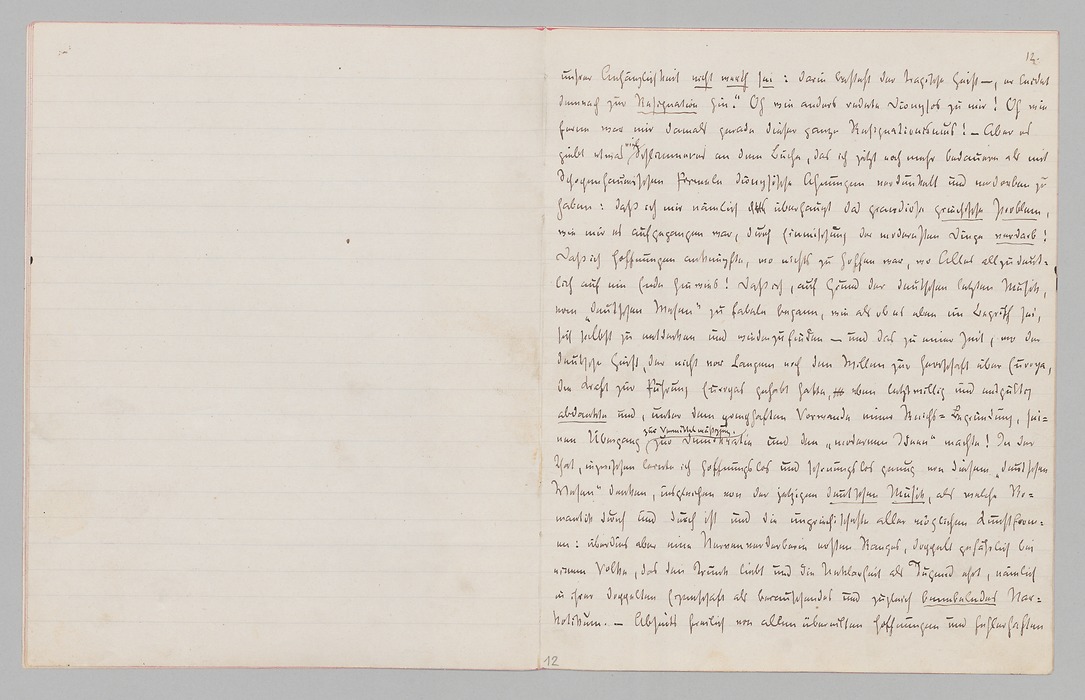 12.
unsrer Anhänglichkeit nicht werth sei : darin besteht der tragische Geist —, er leitet
demnach zur Resignation hin." Oh wie anders redete Dionysos zu mir! Oh wie
ferne war mir damals gerade dieser ganze Resignationismus! — Aber es
giebt etwas viel Schlimmeres an dem Buche, das ich jetzt noch mehr bedauere als mit
Schopenhauerischen Formeln dionysische Ahnungen verdunkelt und verdorben zu
haben : daß ich mir nämlich überhaupt das grandiose griechische Problem,
wie mir es aufgegangen war, durch Einmischung der modernsten Dinge verdarb!
Daß ich Hoffnungen anknüpfte, wo nichts zu hoffen war, wo Alles allzudeut-
lich auf ein Ende hinwies! Daß ich, auf Grund der deutschen letzten Musik,
vom „deutschen Wesen" zu fabeln begann, wie als ob es eben im Begriff sei,
sich selbst zu entdecken und wiederzufinden — und das zu einer Zeit, wo der
deutsche Geist, der nicht vor Langem noch den Willen zur Herrschaft über Europa,
die Kraft zur Führung Europas gehabt hatte, eben letztwillig und endgültig
abdankte und, unter dem pomphaften Vorwande einer Reichs-Begründung, sei-
nen Übergang zur Vermittelmäßigung, zur Demokratie und den „modernen Ideen" machte! In der
That, inzwischen lernte ich hoffnungslos und schonungslos genug von diesem „deutschen
Wesen" denken, insgleichen von der jetzigen deutschen Musik, als welche Ro-
mantik durch und durch ist und die ungriechischeste aller möglichen Kunstfor-
men : überdies aber eine Nervenverderberin ersten Ranges, doppelt gefährlich bei
einem Volke, das den Trunk liebt und die Unklarheit als Tugend ehrt, nämlich
in ihrer doppelten Eigenschaft als berauschendes und zugleich benebelndes Nar-
kotikum. — Abseits freilich von allen übereilten Hoffnungen und fehlerhaften
12